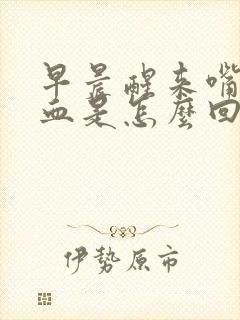 早晨醒来嘴
血是怎麼回
伊勢原市